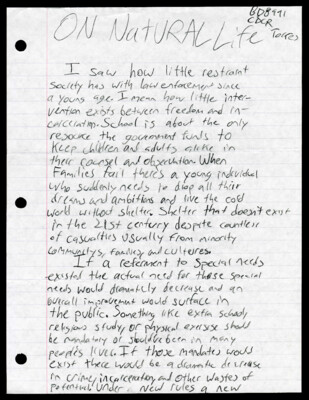 BD8991
CDCR
Torres
ON Natural Life
I saw how little restraint
society has with law enforcement since
a young age. I mean how little inter-
vention exists between freedom and in-
carceration. School is about the only
resource the government funds to
keep children and adults alike in
their counsel and observation. When
families fail there's a young individual
who suddenly needs to drop all thier
dreams and ambitions and live the cold
world without shelter. Shelter that doesn't exist
in the 21st century despite countless
of casualties usually from minority
communitys, families, and cultures.
If a referment to special needs
existed the actual need for those special
needs would dramaticly decrease and an
overall improvement would surface in
the public. Something like extra school,
religious study, or physical exersise should
be mandatory or should've been in many
peoples lives. If those mandates would
exist there would be a dramatic decrease
in crime, incarceration, and other wastes of
potential. Under a new rules a new